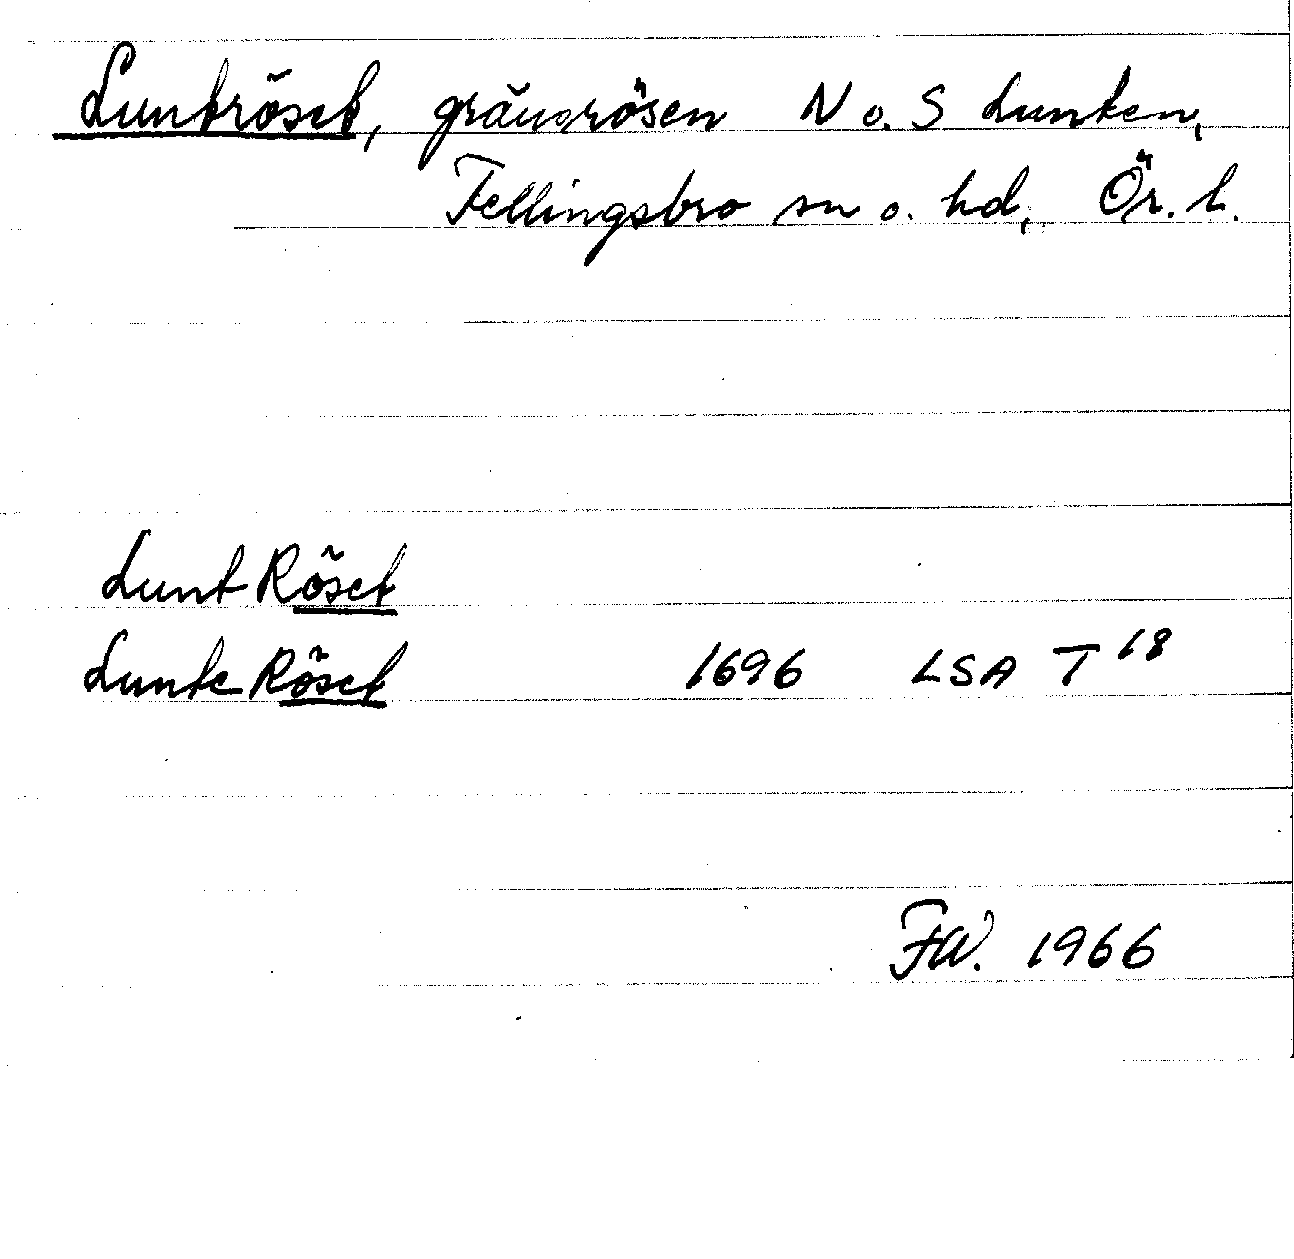 Luntröset, gränsrösen N o. S Lunten,
Fellingsbro sn o. hd, Ör. l.
Lunt Röset
Lunte Röset 1696 LSA T 18
FW. 1966